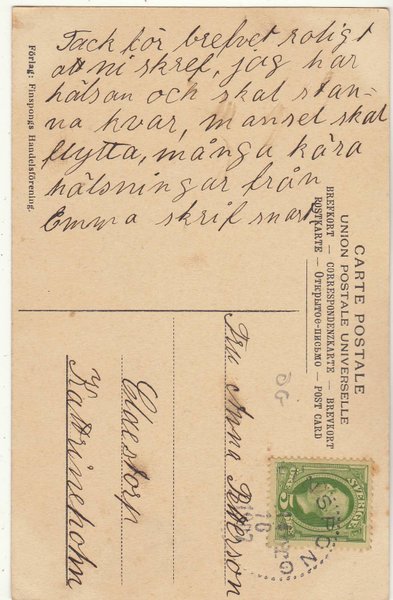 Tack för brefvet roligt
att ni skref, jag har
hälsan och skal stan-
na kvar, mansel skal
flytta, många kära
hälsningar från
Emma skrif snart
Förlag: Finspongs Handelsförening.
CARTE POSTALE
UNION POSTALE UNIVERSELLE
BREFKORT — CORRESPONDENZKARTE — BREVKORT
POSTKARTE — Открытое-письмо — POST CARD
Fru Anna Petterson
Claestorp
Kattrineholm
SVERIGE